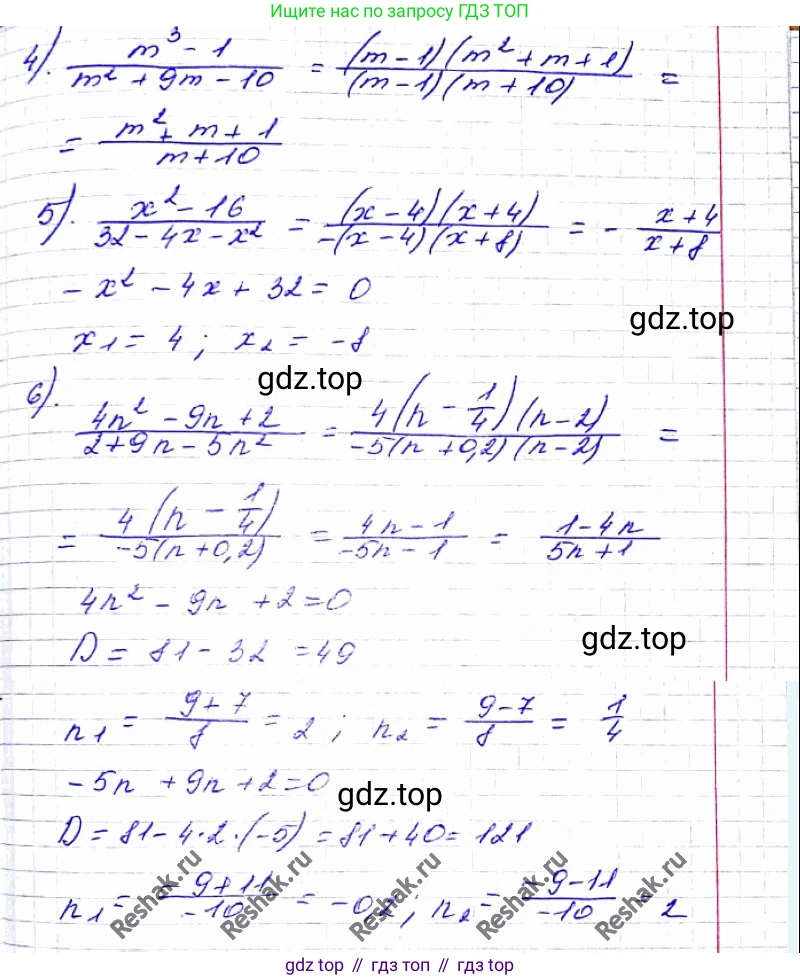 Ищите нас по запросу ГДЗ ТОП
4). (m³ - 1)/(m² + 9m - 10) = ((m - 1)(m² + m + 1))/((m - 1)(m + 10)) =
= (m² + m + 1)/(m + 10)
5). (x² - 16)/(32 - 4x - x²) = ((x - 4)(x + 4))/(-(x - 4)(x + 8)) = - (x + 4)/(x + 8)
- x² - 4x + 32 = 0
gdz.top
x₁ = 4 ; x₂ = -8
gdz.top
6). (4n² - 9n + 2)/(2 + 9n - 5n²) = (4(n - 1/4)(n - 2))/(-5(n + 0,2)(n - 2)) =
= (4(n - 1/4))/(-5(n + 0,2)) = (4n - 1)/(-5n - 1) = (1 - 4n)/(5n + 1)
4n² - 9n + 2 = 0
gdz.top
D = 81 - 32 = 49
n₁ = (9 + 7)/8 = 2 ; n₂ = (9 - 7)/8 = 1/4
- 5n + 9n + 2 = 0
gdz.top
D = 81 - 4·2·(-5) = 81 + 40 = 121
n₁ = (-9 + 11)/(-10) = -0,2 ; n₂ = (-9 - 11)/(-10) = 2
Reshak.ru
Reshak.ru
Reshak.ru
Reshak.ru
gdz top // гдз топ // gdz top